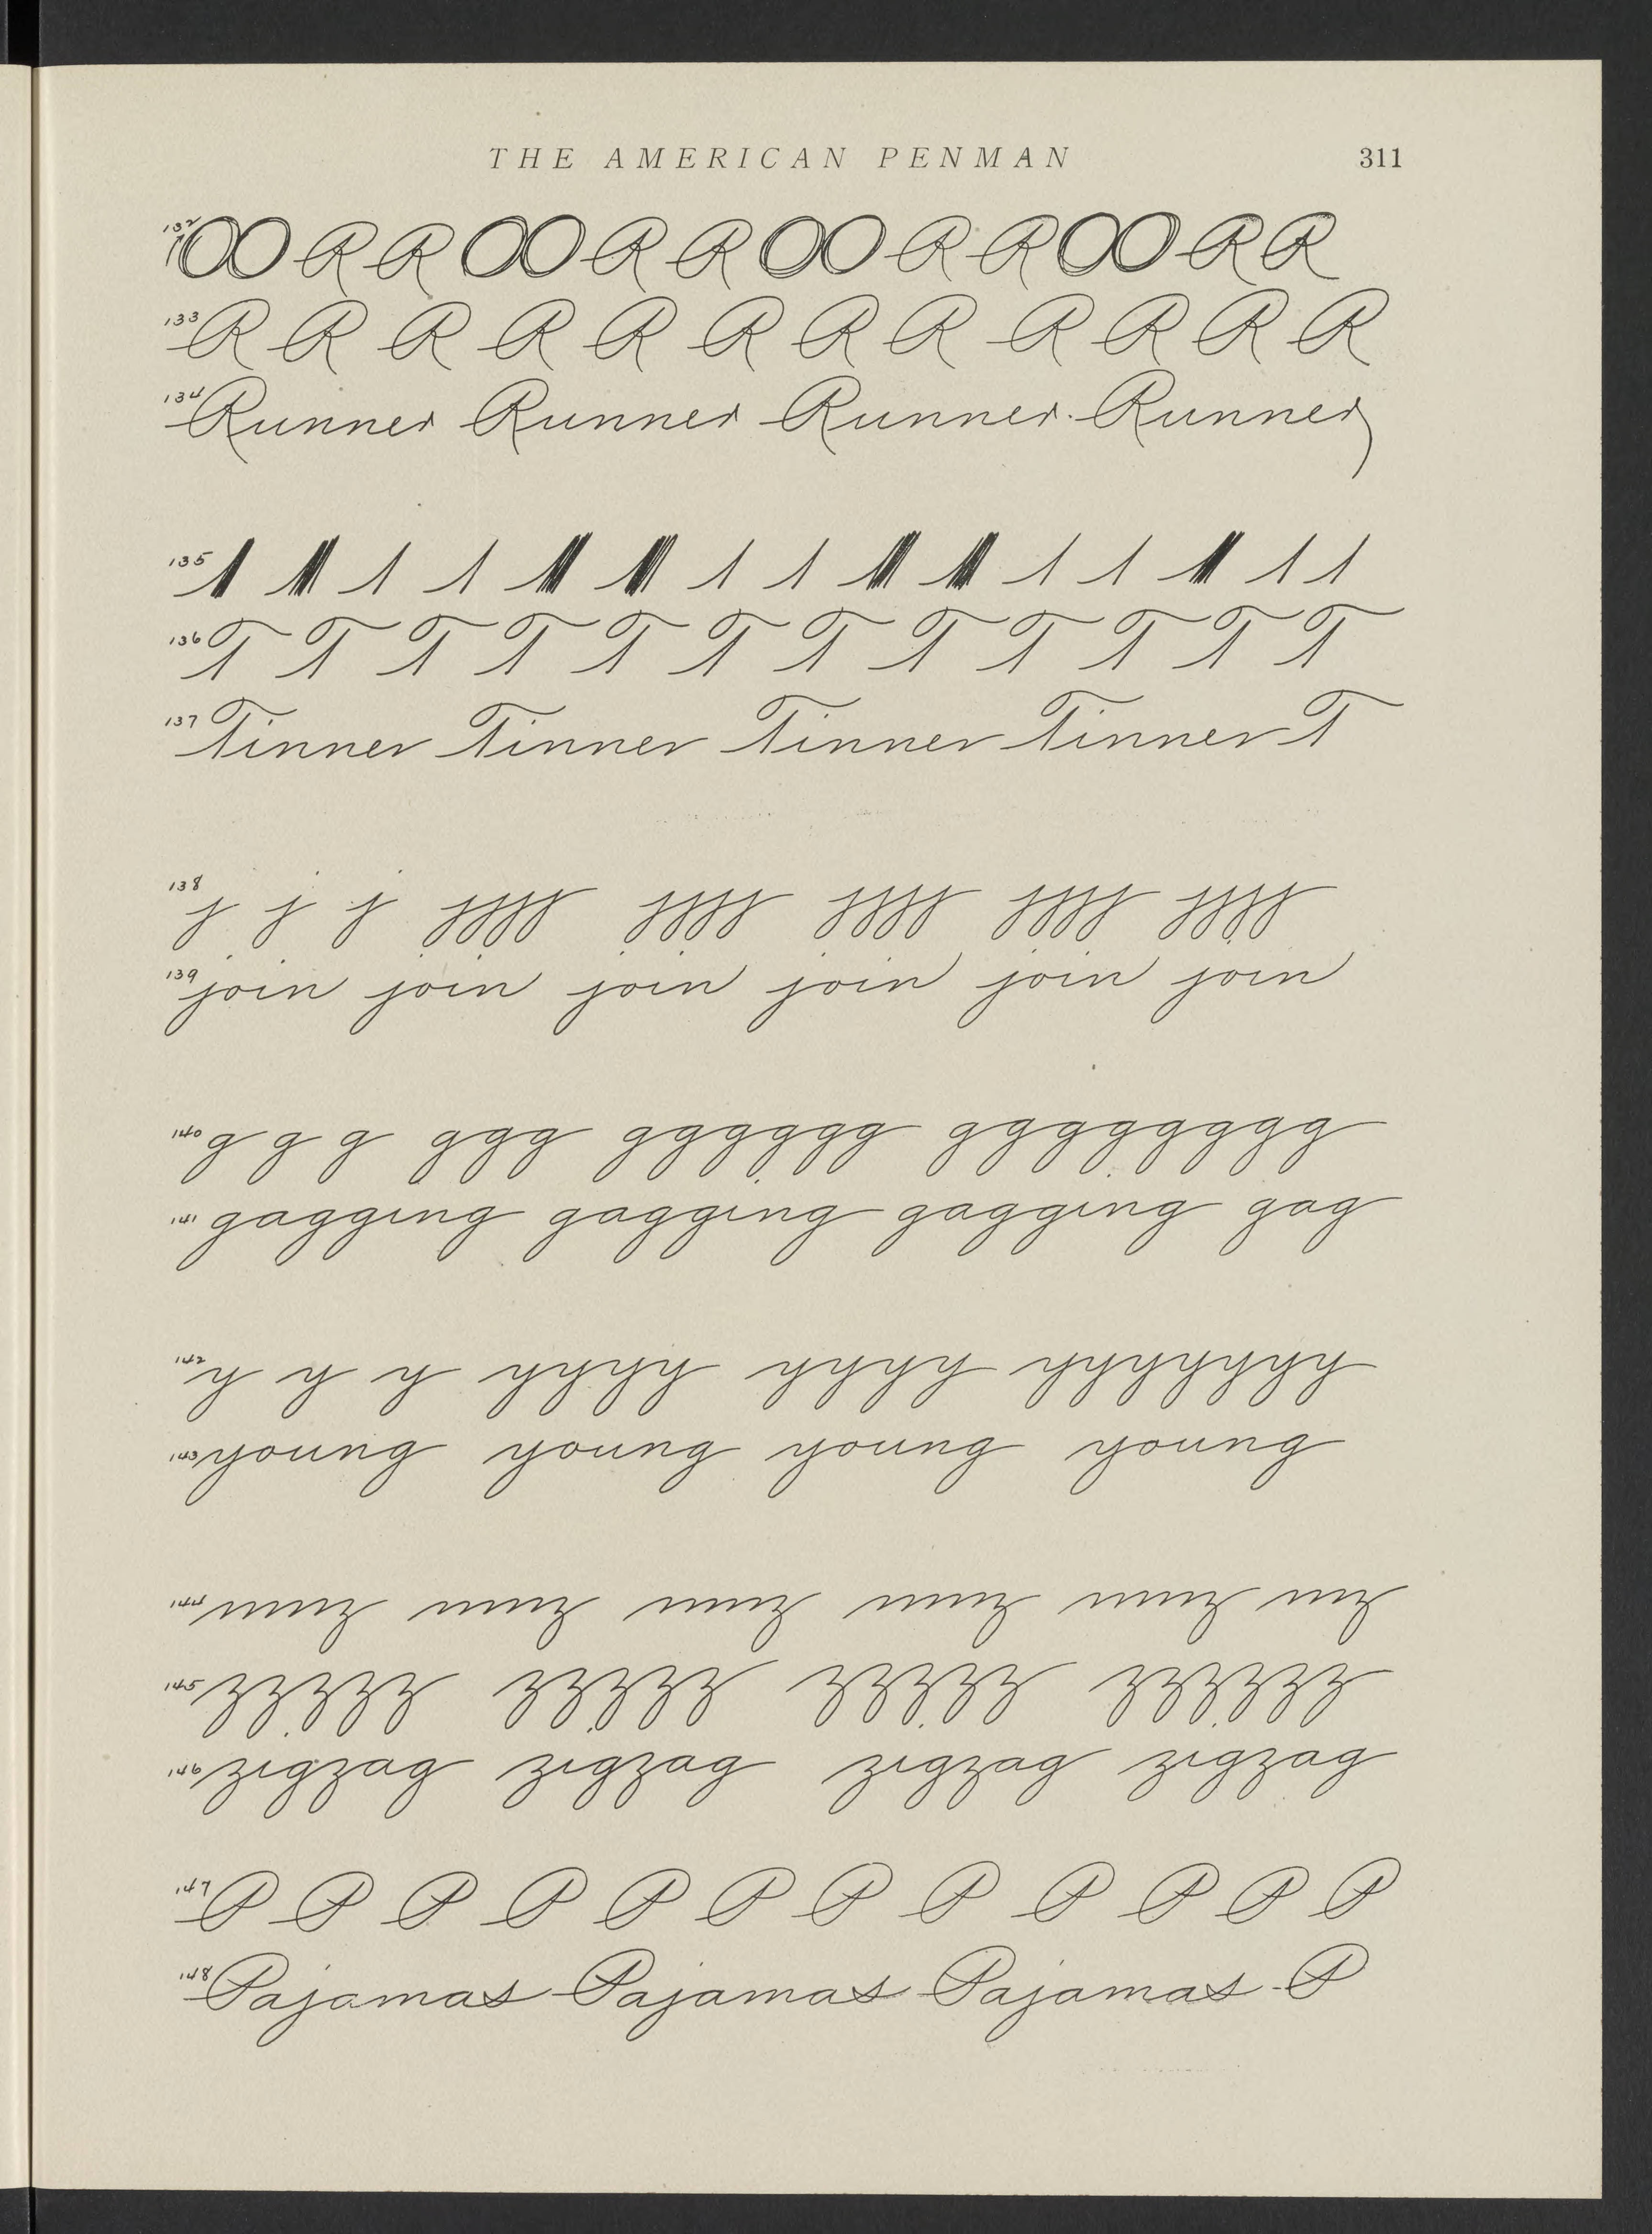 THE AMERICAN PENMAN 311
132 OO R R OO R R OO R R OO R R
133 R R R R R R R R R R R R
134 Runner Runner Runner Runner
135 1 1 1 1 1 1 1 1 1 1 1 1 1 1 1
136 T T T T T T T T T T T T
137 Tinner Tinner Tinner Tinner T
138 j j j jjjj jjjj jjjj jjjj jjjj
139 join join join join join join
140 g g g ggg gggggg ggggggggg
141 gagging gagging gagging gag
142 y y y yyyy yyyy yyyyyyy
143 young young young young
144 nnnz nnnz nnnz nnnz nnnz nz
145 zzzzz zzzzz zzzzz zzzzzz
146 zigzag zigzag zigzag zigzag
147 P P P P P P P P P P P P
148 Pajamas Pajamas Pajamas P